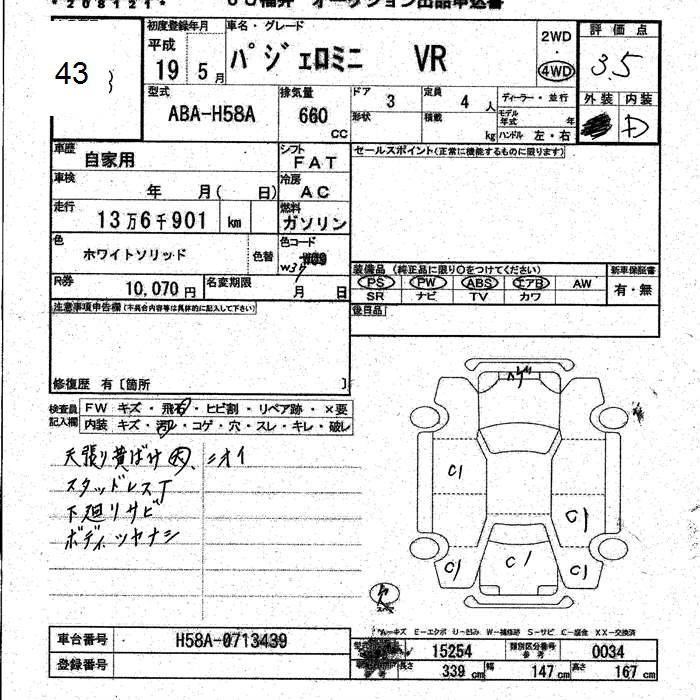 43
初度登録年月 車名・グレード
平成 19 年 5 月 パジェロミニ VR
2WD
4WD
評価点
3.5
外装 内装
D
型式 排気量 ドア 3 定員 4 人 ディーラー・並行
ABA-H58A 660 CC 形状 積載 kg モデル年式 年
ハンドル 左・右
車歴 自家用 シフト FAT セールスポイント(正常に機能するものに限ります)
車検 年 月( 日) 冷房 AC
走行 13万6千901 km 燃料 ガソリン
色 ホワイトソリッド 色替 色コード W37
装備品 (純正品に限り○をつけてください) 新車保証書
PS PW ABS エアB AW 有・無
SR ナビ TV カワ
R券 10,070円 名変期限 月 日
後日品
注意事項申告欄(不具合内容等は具体的に記入して下さい)
修復歴 有〔箇所 〕
検査員記入欄 FW キズ・飛石・ヒビ割・リペア跡・×要
内装 キズ・汚れ・コゲ・穴・スレ・キレ・破レ
天張り黄ばけ 大、ニオイ
スタッドレスT
下廻りサビ
ボディツヤナシ
C1
C1
C1 C1 C1
A-キズ E-エクボ U-凹み W-補修跡 S-サビ C-腐食 XX-交換済
車台番号 H58A-0713439
登録番号
15254 類別区分番号 参考 0034
長さ 339 cm 幅 147 cm 高さ 167 cm